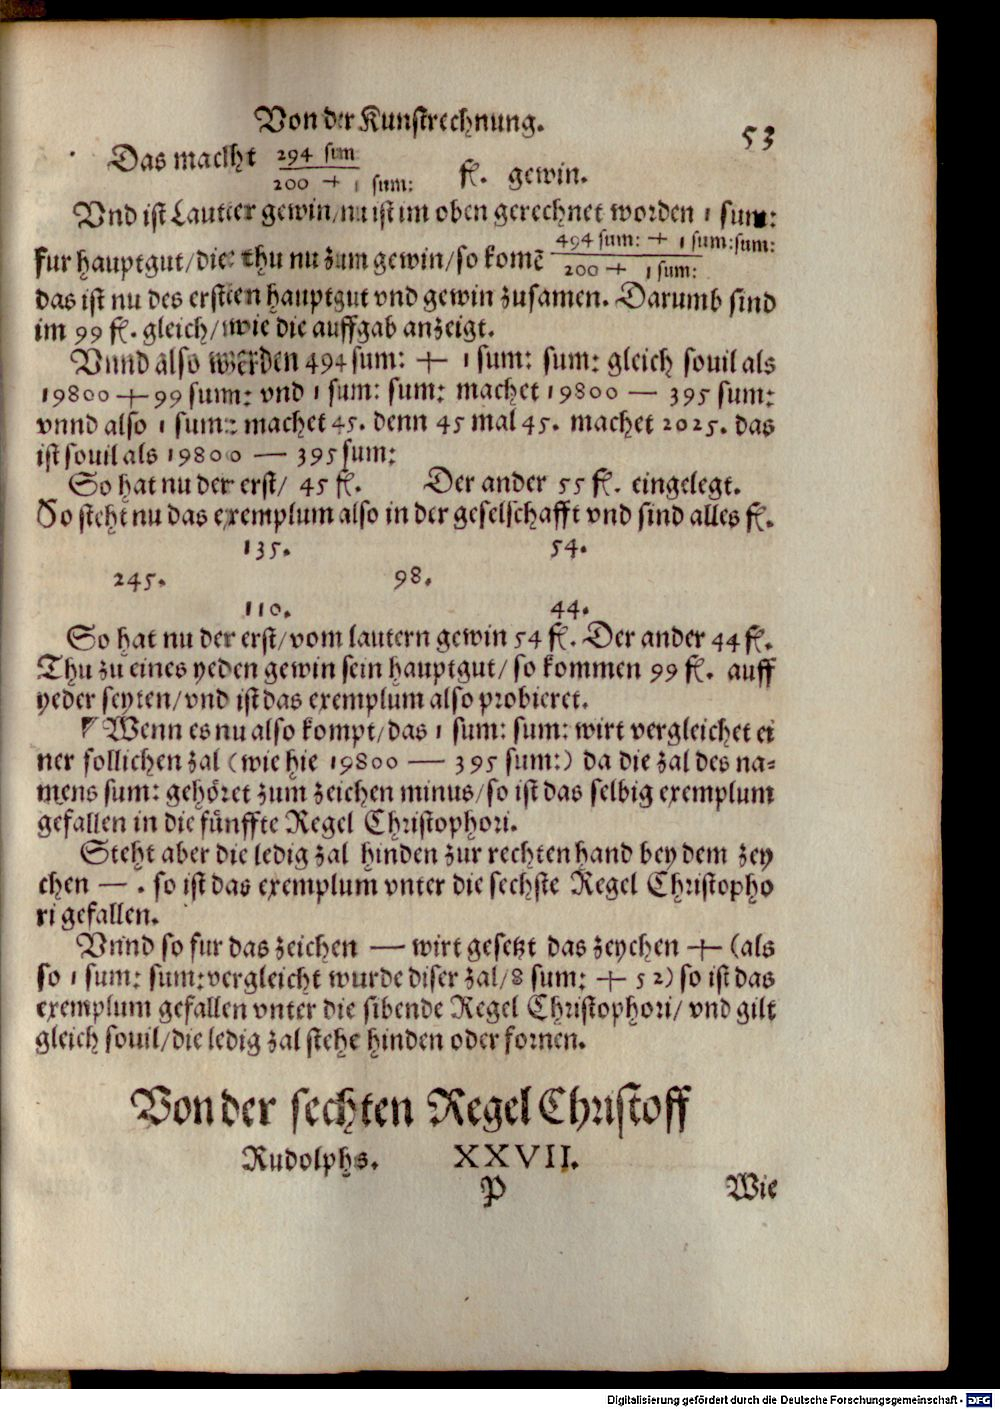 Von der Kunstrechnung. 53
Das macht 294 sum / 200 + 1 sum: fl. gewin.
Vnd ist Lautter gewin/nu ist im oben gerechnet worden 1 sum:
fur hauptgut/die thu nu zum gewin/so komẽ 494 sum: + 1 sum:sum: / 200 + 1 sum:
das ist nu des ersten hauptgut vnd gewin zusamen. Darumb sind
im 99 fl. gleich/wie die auffgab anzeigt.
Vnnd also werden 494 sum: + 1 sum: sum: gleich souil als
19800 + 99 sum: vnd 1 sum: sum: machet 19800 — 395 sum:
vnnd also 1 sum: machet 45. denn 45 mal 45. machet 2025. das
ist souil als 19800 — 395 sum:
So hat nu der erst/ 45 fl. Der ander 55 fl. eingelegt.
So steht nu das exemplum also in der geselschafft vnd sind alles fl.
135. 54.
245. 98.
110. 44.
So hat nu der erst/vom lautern gewin 54 fl. Der ander 44 fl.
Thu zu eines yeden gewin sein hauptgut/ so kommen 99 fl. auff
yeder seyten/vnd ist das exemplum also probieret.
Wenn es nu also kompt/das 1 sum: sum: wirt vergleichet ei
ner sollichen zal (wie hie 19800 — 395 sum:) da die zal des na-
mens sum: gehöret zum zeichen minus/so ist das selbig exemplum
gefallen in die fünffte Regel Christophori.
Steht aber die ledig zal hinden zur rechten hand bey dem zey
chen — . so ist das exemplum vnter die sechste Regel Christopho
ri gefallen.
Vnnd so fur das zeichen — wirt gesetzt das zeychen + (als
so 1 sum: sum:vergleicht wurde diser zal/8 sum: + 52) so ist das
exemplum gefallen vnter die sibende Regel Christophori/ vnd gilt
gleich souil/die ledig zal stehe hinden oder fornen.
Von der sechten Regel Christoff
Rudolphs. XXVII.
P Wie
Digitalisierung gefördert durch die Deutsche Forschungsgemeinschaft - DFG